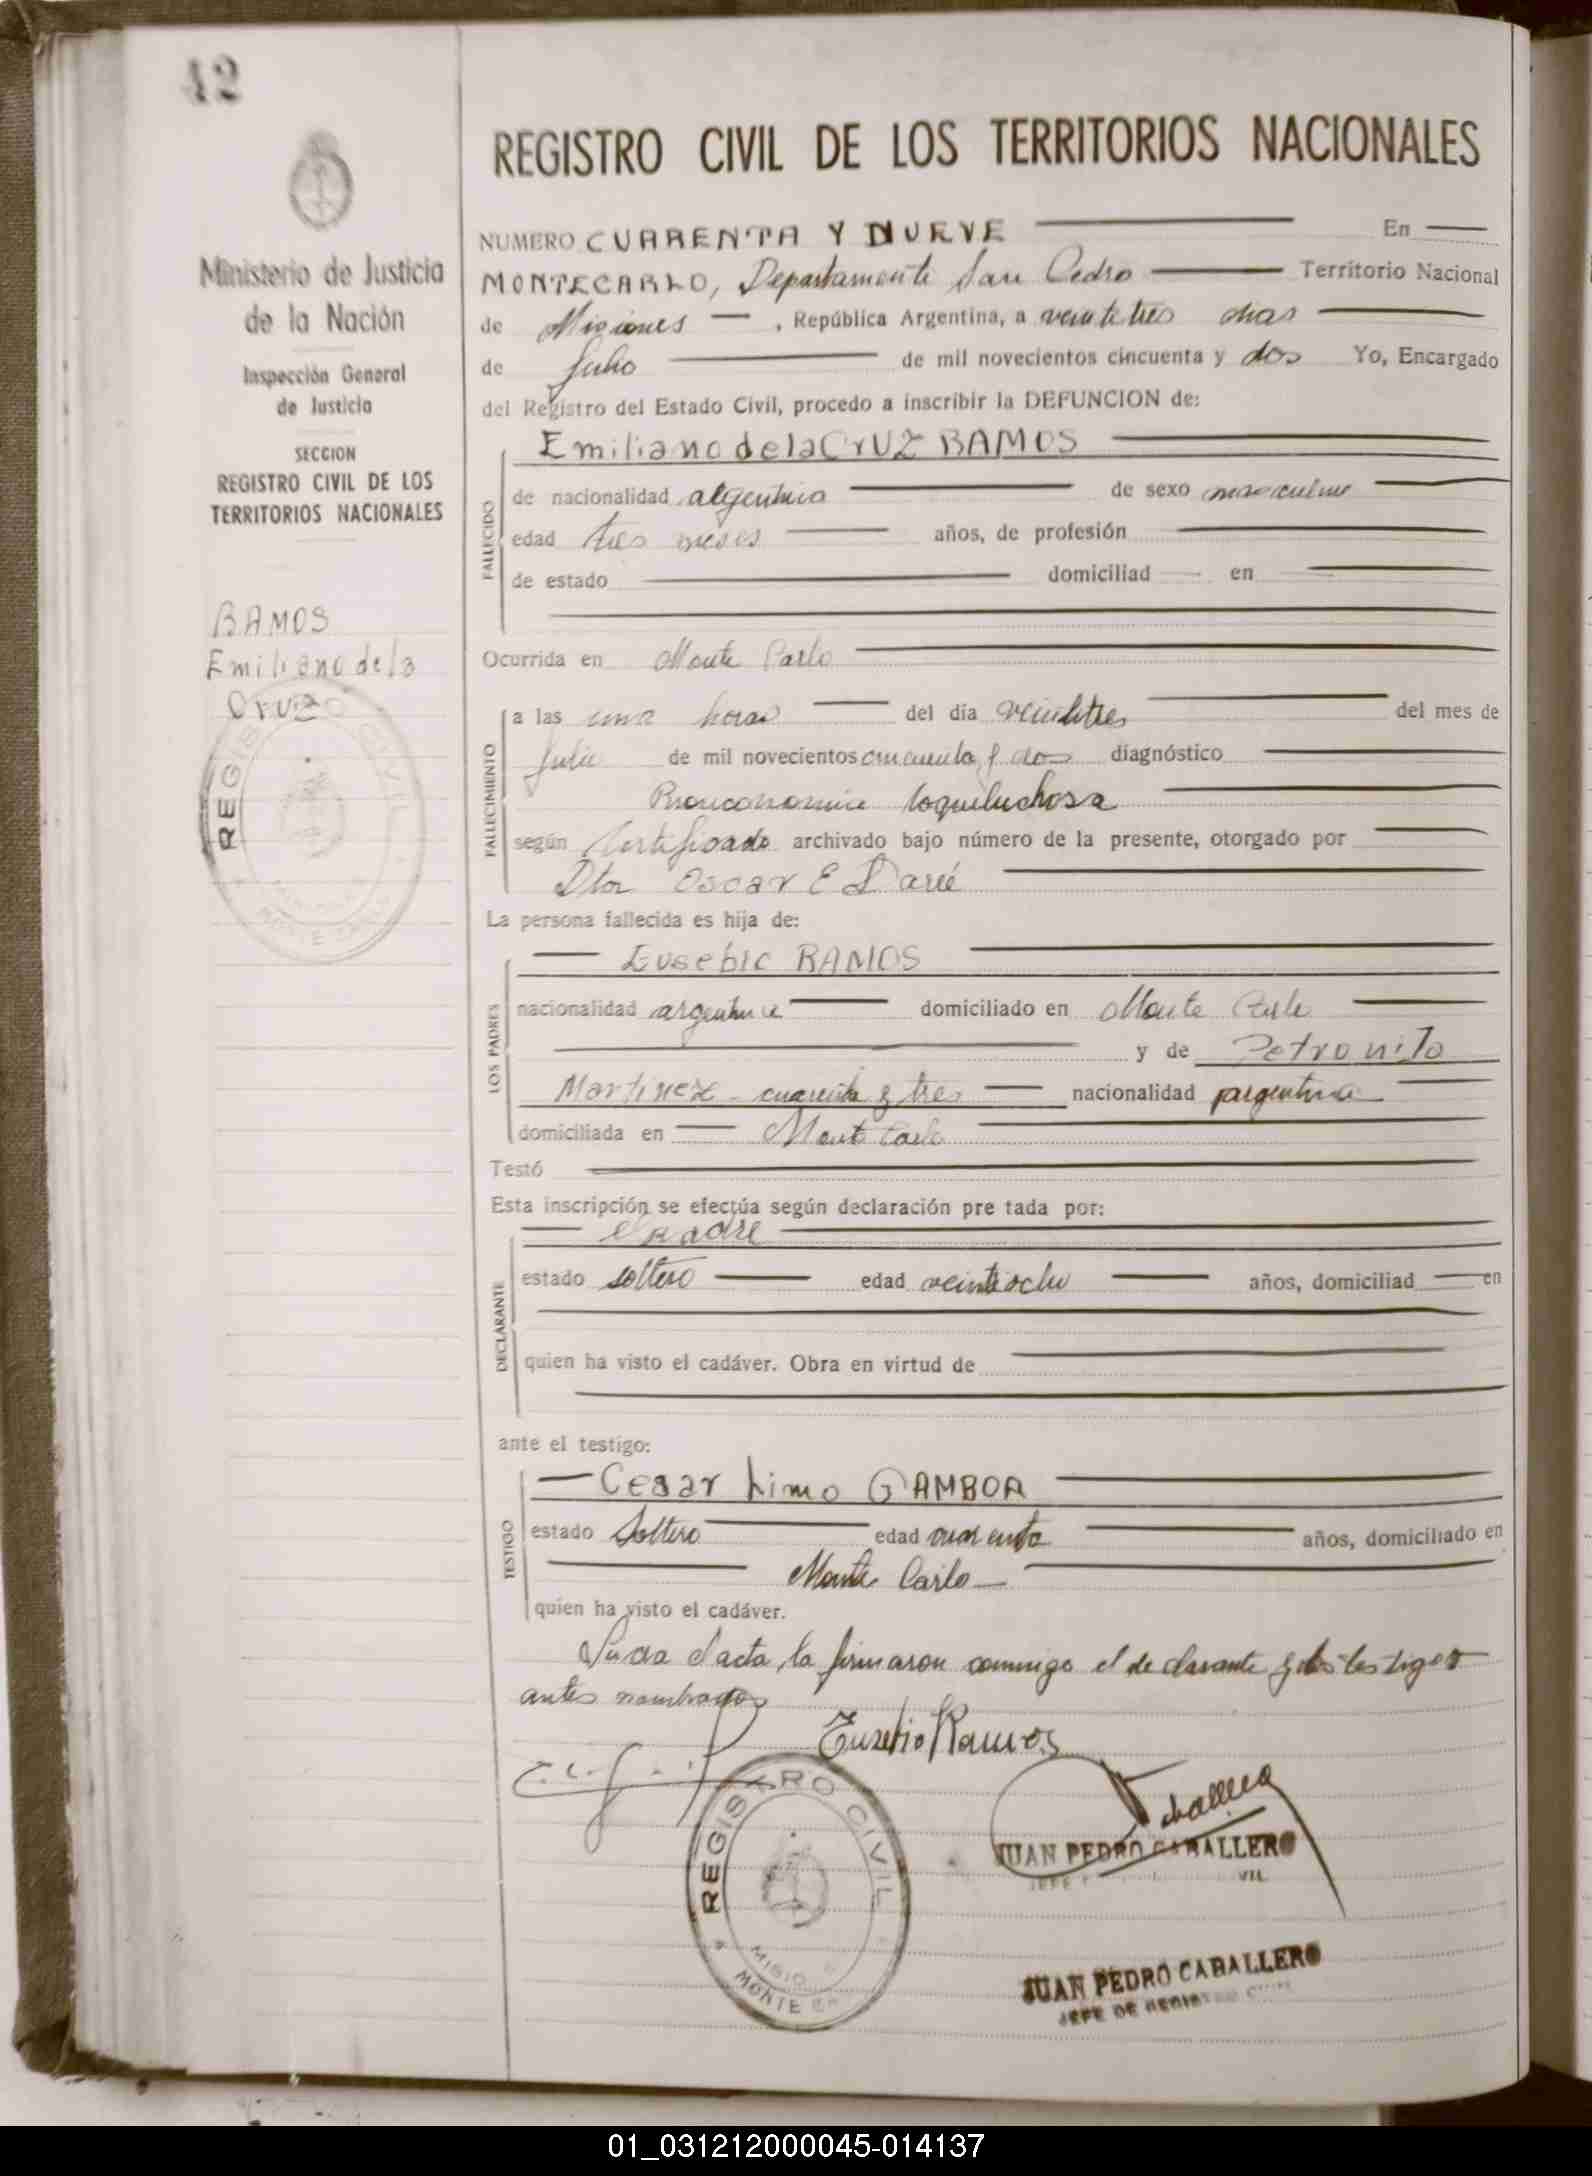 42
Ministerio de Justicia
de la Nación
Inspección General
de Justicia
SECCION
REGISTRO CIVIL DE LOS
TERRITORIOS NACIONALES
RAMOS
Emiliano de la
Cruz
REGISTRO CIVIL
MONTE
REGISTRO CIVIL DE LOS TERRITORIOS NACIONALES
NUMERO CUARENTA Y NUEVE En
MONTECARLO, Departamento San Pedro Territorio Nacional
de Misiones , República Argentina, a veintetres dias
de Julio de mil novecientos cincuenta y dos Yo, Encargado
del Registro del Estado Civil, procedo a inscribir la DEFUNCION de:
FALLECIDO
Emiliano de la CrUZ RAMOS
de nacionalidad argentino de sexo masculino
edad tres meses años, de profesión
de estado domiciliad en
Ocurrida en Monte Carlo
FALLECIMIENTO
a las una horas del día veintitres del mes de
Julio de mil novecientos cincuenta y dos diagnóstico
coqueluchosa
según Certificado archivado bajo número de la presente, otorgado por
Dtor Oscar E
La persona fallecida es hija de:
LOS PADRES
Eusebio RAMOS
nacionalidad argentina domiciliado en Monte Carlo
y de Petronila
Martinez - cuarenta y tres nacionalidad argentina
domiciliada en Monte Carlo
Testó
Esta inscripción se efectúa según declaración pre tada por:
DECLARANTE
el padre
estado soltero edad veintiocho años, domiciliad en
quien ha visto el cadáver. Obra en virtud de
ante el testigo:
TESTIGO
Cesar Limo GAMBOA
estado Soltero edad cuarenta años, domiciliado en
Monte Carlo
quien ha visto el cadáver.
acta, la firmaron conmigo el declarante y los testigos
antes nombrados
Eusebio Ramos
Caballero
JUAN PEDRO CABALLERO
JEFE VIL
REGISTRO CIVIL
MISIO
MONTE CA
JUAN PEDRO CABALLERO
JEFE DE REGISTRO CIVIL
01_031212000045-014137